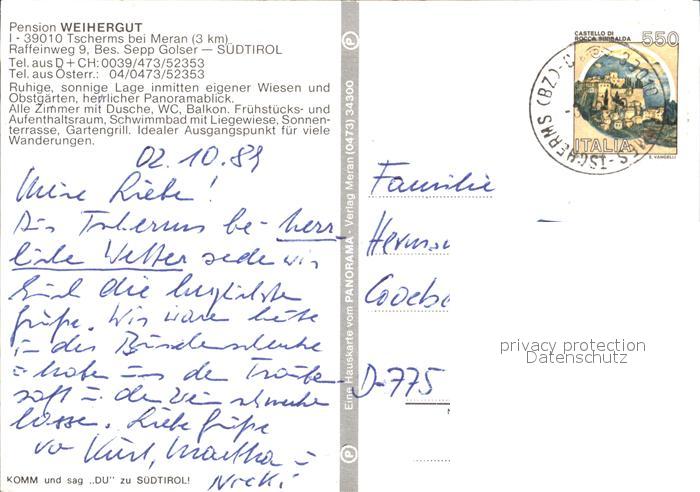 Pension WEIHERGUT
I - 39010 Tscherms bei Meran (3 km)
Raffeinweg 9, Bes. Sepp Golser — SÜDTIROL
Tel. aus D + CH: 0039/473/52353
Tel. aus Österr.: 04/0473/52353
Ruhige, sonnige Lage inmitten eigener Wiesen und
Obstgärten, herrlicher Panoramablick.
Alle Zimmer mit Dusche, WC, Balkon. Frühstücks- und
Aufenthaltsraum, Schwimmbad mit Liegewiese, Sonnen-
terrasse, Gartengrill. Idealer Ausgangspunkt für viele
Wanderungen.
02.10.89
Meine Liebe!
Aus Tscherms bei herr-
liche Wetter sende wir
Euch die herzlichste
Grüße. Wir ware heute
in der
habe uns de Traube
saft de Wein schmecke
lasse. Liebe Grüße
vo Kurt, Martha
Nicki
KOMM und sag „DU" zu SÜDTIROL!
Eine Hauskarte vom PANORAMA - Verlag Meran (0473) 34300
CASTELLO DI
550
ITALIA
E. VANGELLI
TSCHERMS (BZ)
Familie
Herman
D-775
privacy protection
Datenschutz